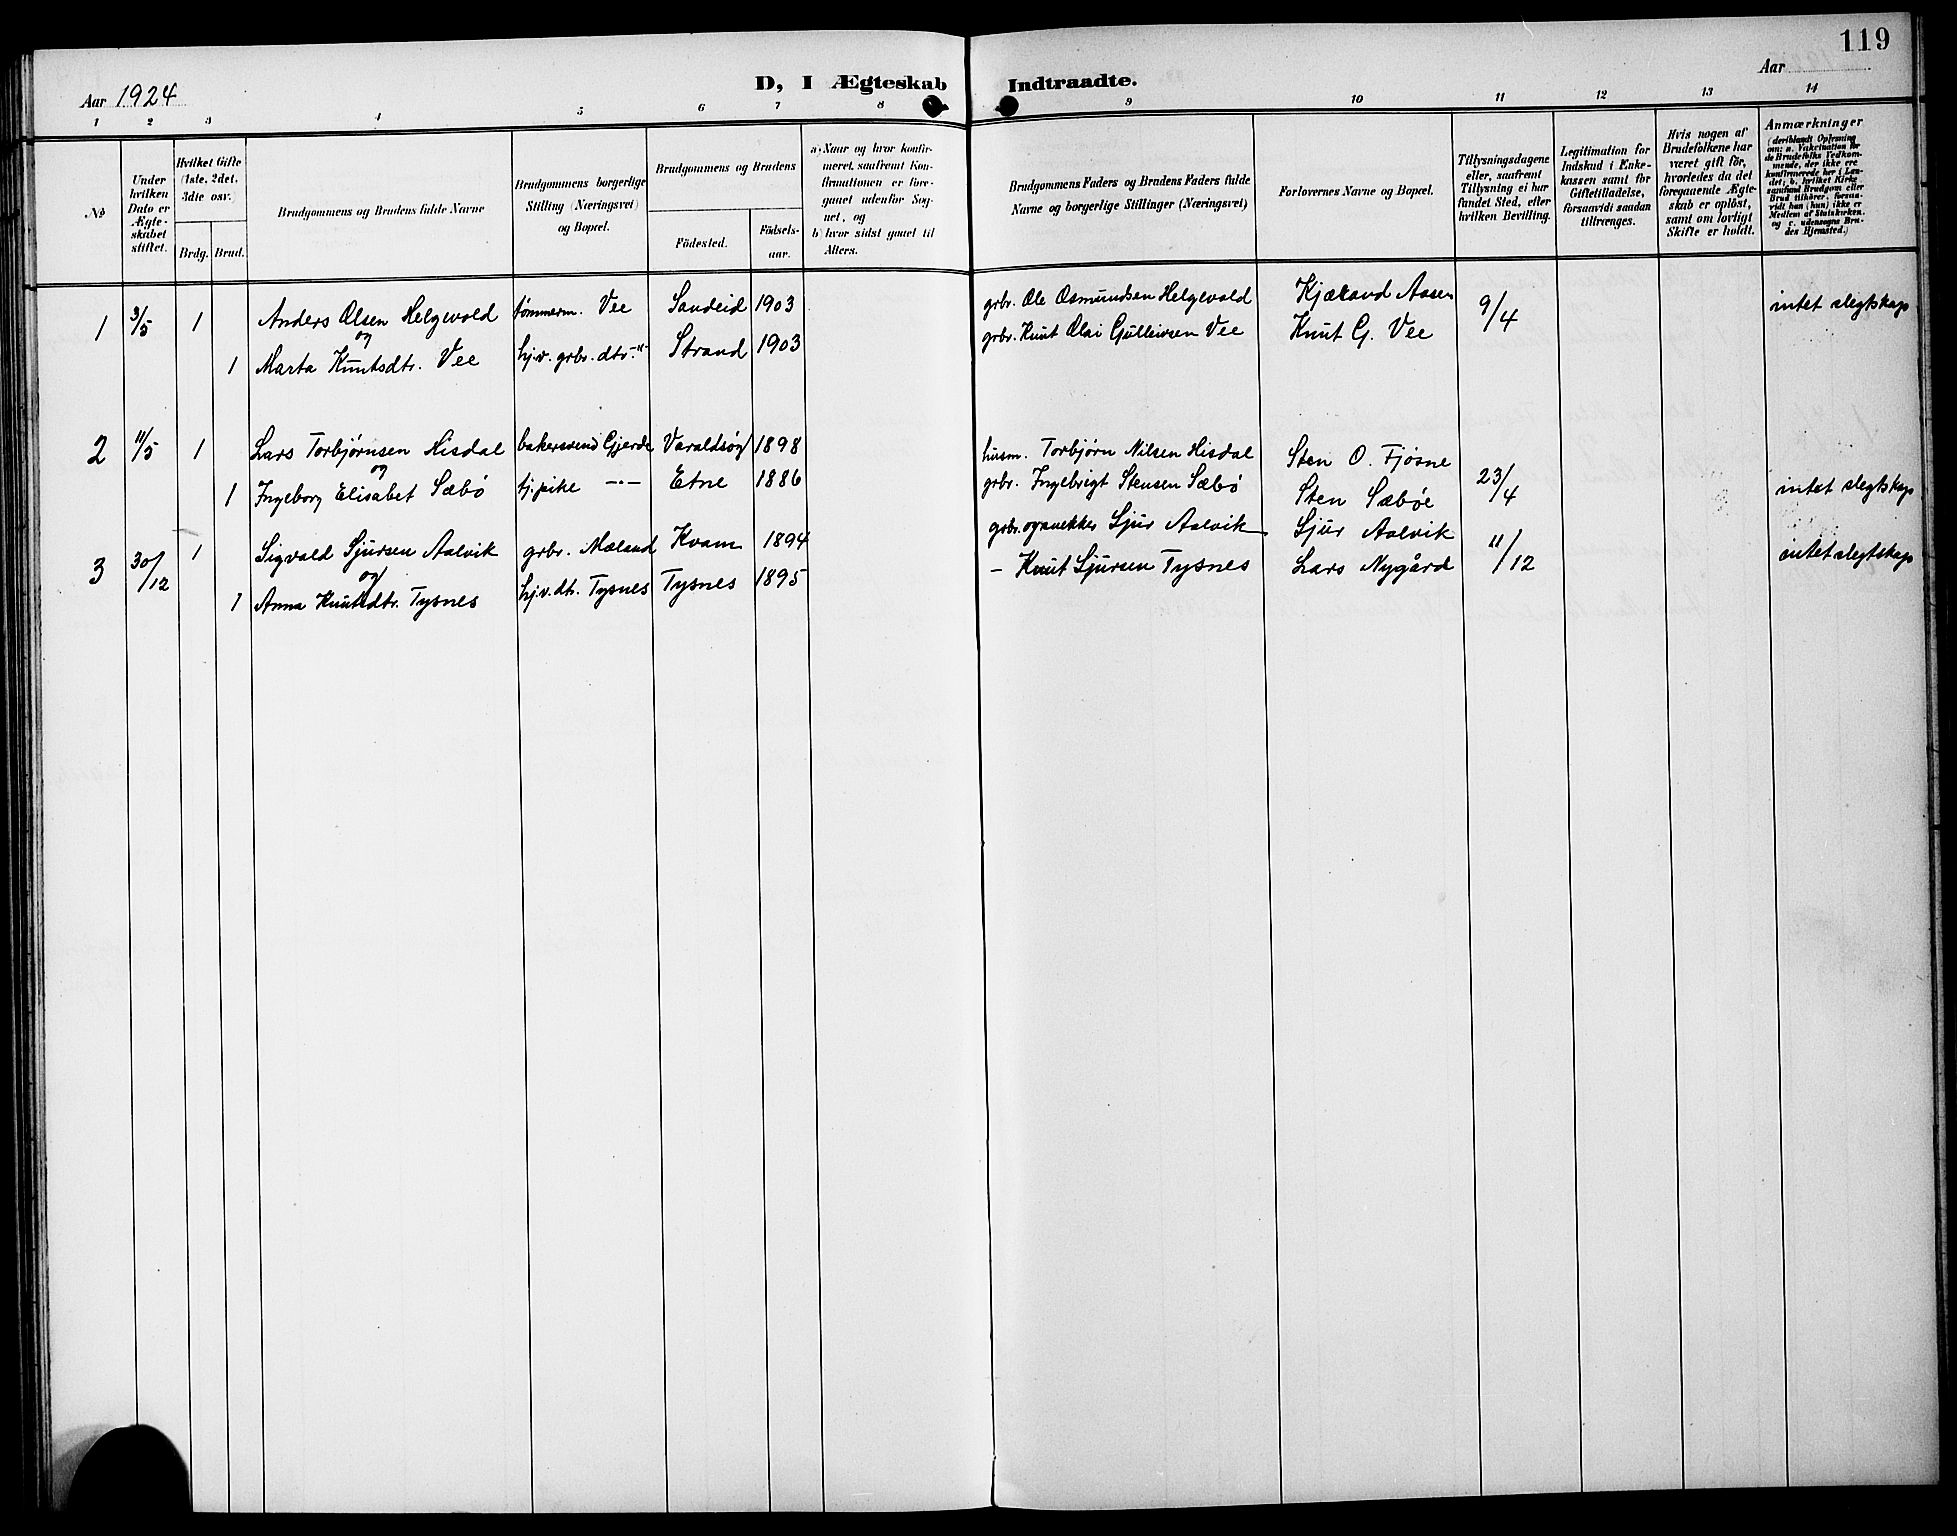 119
Aar 1924
D, I Ægteskab Indtraadte.
Aar
1 2 3 4 5 6 7 8 9 10 11 12 13 14
No
Under hvilken Dato er Ægte-skabet stiftet.
Hvilket Gifte (1ste, 2det, 3dte osv.)
Brdg. Brud.
Brudgommens og Brudens fulde Navne
Brudgommens borgerlige Stilling (Næringsvei) og Bopæl.
Brudgommens og Brudens
Födested.
Födsels-aar.
a) Naar og hvor konfir-meret, saafremt Kon-firmationen er fore-gaaet udenfor Sog-net, og
b) hvor sidst gaaet til Alters.
Brudgommens Faders og Brudens Faders fulde Navne og borgerlige Stillinger (Næringsvei)
Forlovernes Navne og Bopæl.
Tillysningsdagene eller, saafremt Tillysning ei har fundet Sted, efter hvilken Bevilling.
Legitimation for Indskud i Enke-kassen samt for Giftetilladelse, forsaavidt saadan tiltrænges.
Hvis nogen af Brudefolkene har været gift för, hvorledes da det foregaaende Ægte-skab er oplöst, samt om lovligt Skifte er holdt.
Anmærkninger
(deriblandt Oplysning om: a. Vakcination for de Brudefolks Vedkom-mende, der ikke ere konfirmerede her i Lan-det; b. hvilket Kirke-samfund Brudgom eller Brud tilhörer, forsaa-vidt han (hun) ikke er Medlem af Statskirken, og c. udensogns Bru-des Hjemsted.)
1 3/5 1 Anders Olsen Helgevold tömmerm. Vee Sandeid 1903 grbr. Ole Osmundsen Helgevold Kjæland Aasen 9/4 intet slegtskap
og
1 Marta Knutsdtr. Vee hjv. grbr. dtr. -"- Strand 1903 grbr. Knut Olai Gulleivsen Vee Knut G. Vee
2 11/5 1 Lars Torbjørnsen Hisdal bakersvend Gjerde Varaldsøy 1898 husm. Torbjørn Nilsen Hisdal Sten O. Fjøsne 23/4 intet slegtskap
og
1 Ingeborg Elisabet Sæbø tj.pike -"- Etne 1886 grbr. Ingebrigt Stensen Sæbø Sten Sæbøe
3 30/12 1 Sigvald Sjursen Aalvik grbr. Mæland Kvam 1894 grbr. og snekker Sjur Aalvik Sjur Aalvik 11/12 intet slegtskap
og
1 Anna Knutsdtr. Tysnes hjv. dtr. Tysnes Tysnes 1895 - Knut Sjursen Tysnes Lars Nygård